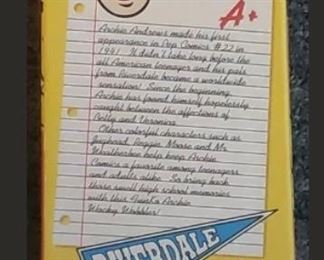 A+
Archie Andrews made his first
appearance in Pep Comics #22 in
1941. It didn't take long before the
all American teenager and his pals
from Riverdale became a worldwide
sensation! Since the beginning
Archie has found himself hopelessly
caught between the affections of
Betty and Veronica.
Other colorful characters such as
Jughead, Reggie, Moose and Mr.
Weatherbee help keep Archie
Comics a favorite among teenagers
and adults alike. So bring back
those small high school memories
with this Funko Archie
Wacky Wobbler!
RIVERDALE